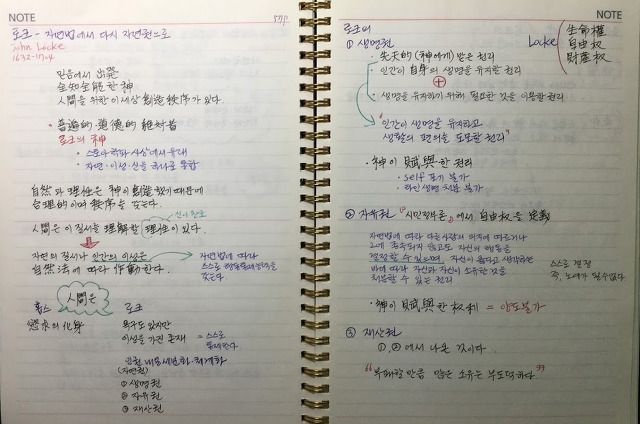 NOTE
로크 - 자연법에서 다시 자연권으로
John Locke
1632-1704
믿음에서 出発
全知全能한 神
人間을 위한 이세상 創造秩序가 있다.
• 普遍的·道德的 絶対者
로크의 神
• 스토아학파 사상에서 유래
• 자연·이성·신을 하나로 통합
自然과 理性은 神이 創造했기 때문에
合理的이며 秩序을 갖는다.
신이 창조
人間은 이 질서를 理解할 理性이 있다.
자연의 질서나 인간의 이성은
自然法에 따라 作動한다.
자연법에 따라
스스로
갖는다
人間은
홉스
로크
慾求의 化身
욕구도 있지만
이성을 가진 존재
= 스스로
통제한다
인권 내용 세분화·체계화
(자연권)
① 생명권
② 자유권
③ 재산권
NOTE
로크의
① 생명권
Locke
生命權
自由权
財産权
• 先天的 (神에게) 받은 권리
• 인간이 自身의 생명을 유지할 권리
+
• 생명을 유지하기 위해 필요한 것을 이용할 권리
"인간이 생명을 유지하고
생활의 편의을 도모할 권리"
• 神이 賦與한 권리
- self 포기 불가
- 타인 생명 처분 불가
② 자유권 『시민정부론』에서 自由权을 定義
자연법에 따라 다른사람의 의지에 따르거나
그에 종속되지 않고도 자신의 행동을
결정할 수 있으며, 자신이 옳다고 생각하는
바에 따라 자신과 자신이 소유한 것을
처분할 수 있는 권리
스스로 결정
즉, 노예가 될수 없다
• 神이 賦與한 权利 = 양도불가
③ 재산권
①,②에서 나온 것이다.
"부패할 만큼 많은 소유는 부도덕하다."